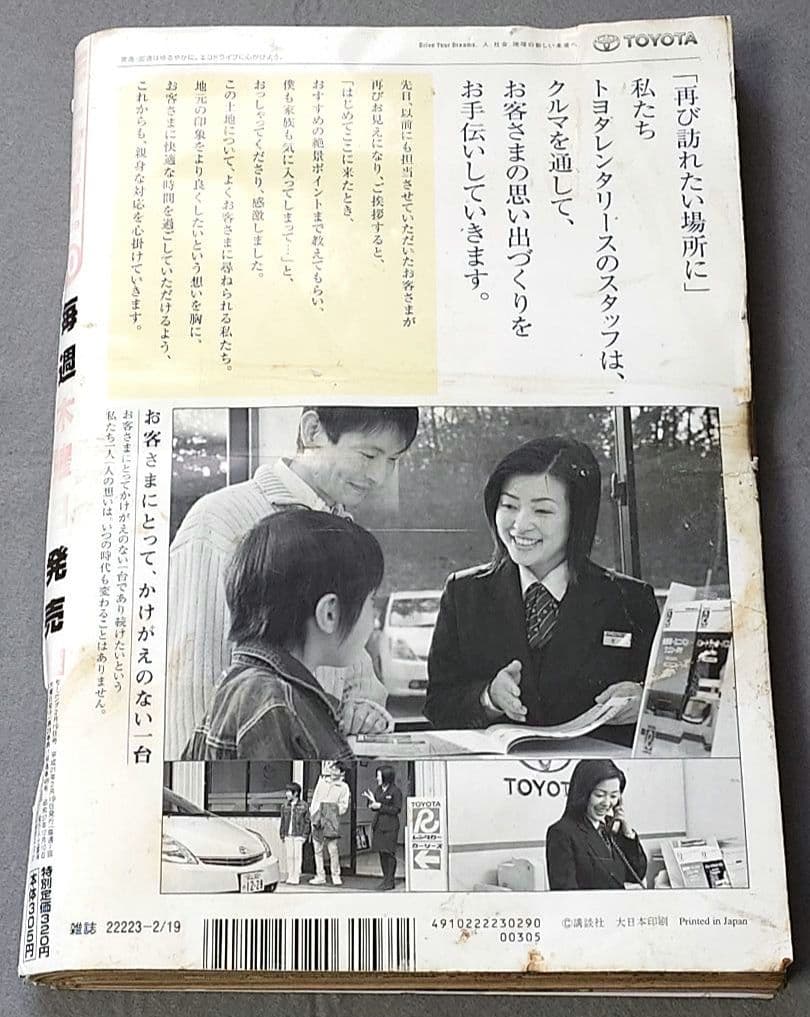 発進・加速はゆるやかに。エコドライブに心がけよう。
Drive Your Dreams. 人、社会、地球の新しい未来へ
TOYOTA
「再び訪れたい場所に」
私たち
トヨタレンタリースのスタッフは、
クルマを通して、
お客さまの思い出づくりを
お手伝いしていきます。
先日、以前にも担当させていただいたお客さまが
再びお見えになり、ご挨拶すると、
「はじめてここに来たとき、
おすすめの絶景ポイントまで教えてもらい、
僕も家族も気に入ってしまって…」と、
おっしゃってくださり、感激しました。
この土地について、よくお客さまに尋ねられる私たち。
地元の印象をより良くしたいという想いを胸に、
お客さまに快適な時間を過ごしていただけるよう、
これからも、親身な対応を心掛けていきます。
お客さまにとって、かけがえのない一台
お客さまにとってかけがえのない一台であり続けたいという
私たち一人一人の想いは、いつの時代も変わることはありません。
TOYOTA
TOYOTA
R
レンタカー
カーリース
12-28
毎週木曜日発売
特別定価320円
本体305円
雑誌 22223-2/19
4910222230290
00305
©講談社 大日本印刷 Printed in Japan